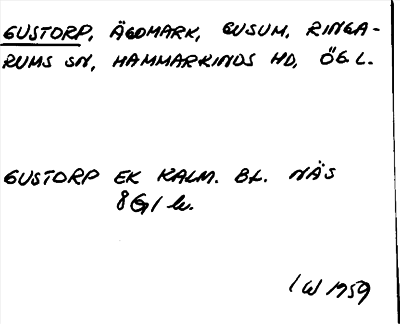 GUSTORP, ÄGOMARK, GUSUM, RINGA-
RUMS SN, HAMMARKINDS HD, ÖG L.
GUSTORP EK KALM. BL. NÄS
8G1 lv.
IW 1959